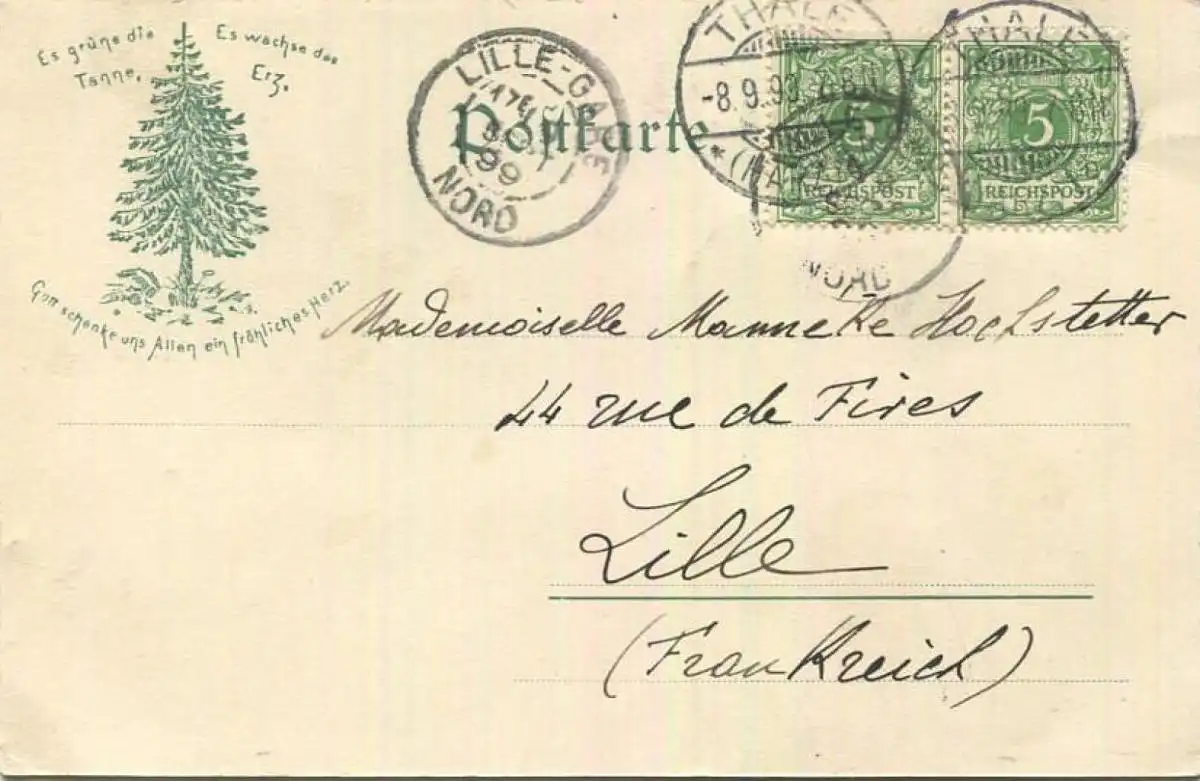 Es grüne die
Tanne,
Es wachse das
Erz,
Gott schenke uns Allen ein fröhliches Herz.
Postkarte
LILLE-GARE
99
NORD
THALE
-8.9.99. 7-8N
*(HARZ)
THALE
5
REICHSPOST
5
REICHSPOST
NORD
Mademoiselle Manneke Hochstetter
44 rue de Fives
Lille
(Frankreich)